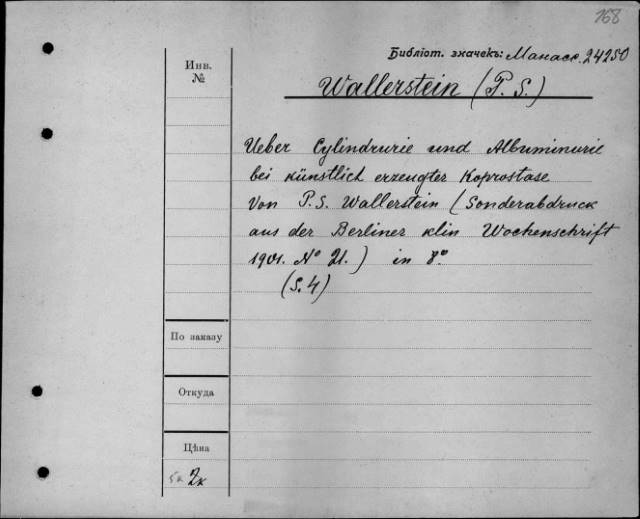 168
Библіот. значекъ: Манасс. 24250
Инв.
№
Wallerstein (P. S.)
Ueber Cylindrurie und Albuminurie
bei künstlich erzeugter Koprostase
von P. S. Wallerstein (Sonderabdruck
aus der Berliner klin Wochenschrift
1901. № 21.) in 8°
(S. 4)
По заказу
Откуда
Цѣна
5к 2к